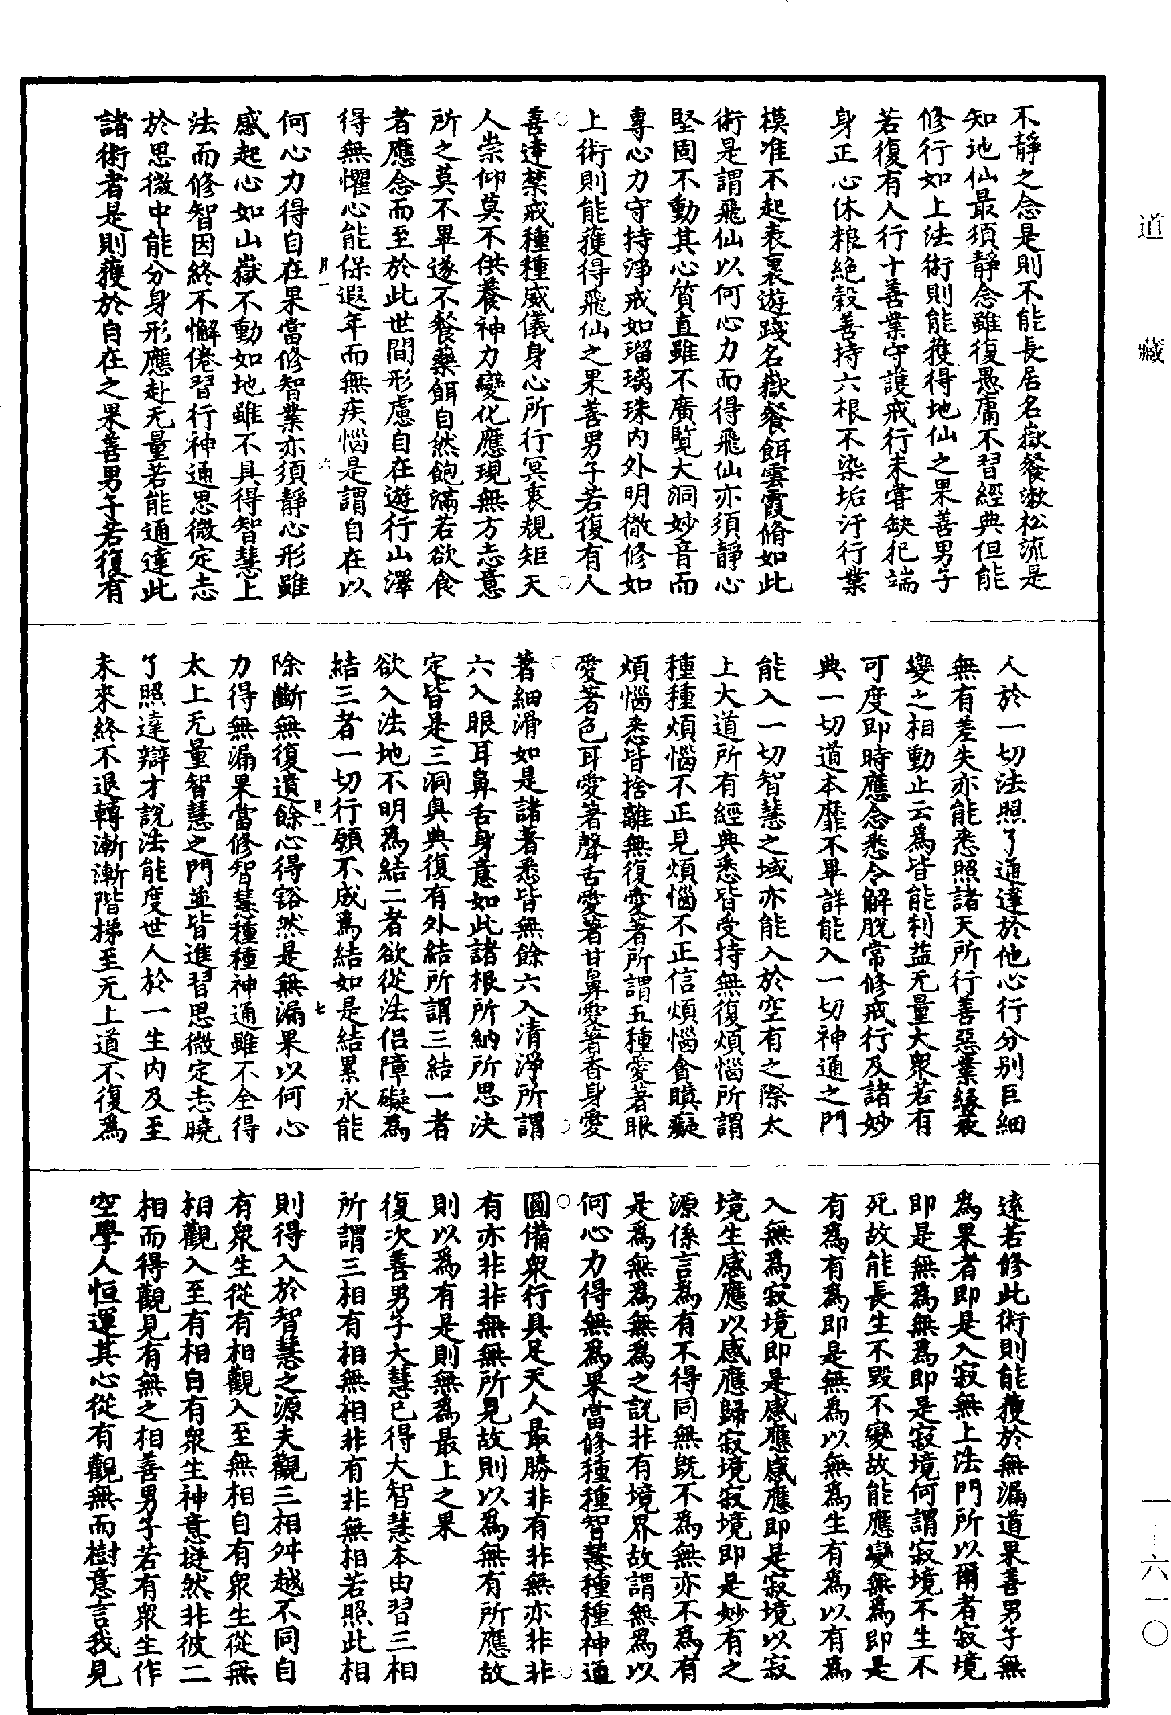 道藏
不靜之念是則不能長居名嶽餐漱松流是
知地仙最須靜念雖復愚庸不習經典但能
修行如上法術則能獲得地仙之果善男子
若復有人行十善業守護戒行未嘗缺犯端
身正心休粮絶穀善持六根不染垢汙行業
模准不起表裏遊踐名嶽餐餌雲霞脩如此
術是謂飛仙以何心力而得飛仙亦須靜心
堅固不動其心質直雖不廣覽大洞妙音而
專心力守持淨戒如瑠璃珠內外明徹修如
上術則能獲得飛仙之果善男子若復有人
善達禁戒種種威儀身心所行冥衷規矩天
人崇仰莫不供養神力變化應現無方志意
所之莫不畢遂不餐藥餌自然飽滿若欲食
者應念而至於此世間形慮自在遊行山澤
得無懼心能保遐年而無疾惱是謂自在以
何心力得自在果當修智業亦須靜心形雖
感起心如山嶽不動如地雖不具得智慧上
法而修智因終不懈倦習行神通思微定志
於思微中能分身形應赴无量若能通達此
諸術者是則獲於自在之果善男子若復有
人於一切法照了通達於他心行分別巨細
無有差失亦能悉照諸天所行善惡業緣衰
變之相動止云爲皆能利益无量大衆若有
可度即時應念悉令解脱常修戒行及諸妙
典一切道本靡不畢詳能入一切神通之門
能入一切智慧之域亦能入於空有之際太
上大道所有經典悉皆受持無復煩惱所謂
種種煩惱不正見煩惱不正信煩惱貪瞋癡
煩惱悉皆捨離無復愛著所謂五種愛著眼
愛著色耳愛著聲舌愛著甘鼻愛著香身愛
著細滑如是諸著悉皆無餘六入清淨所謂
六入眼耳鼻舌身意如此諸根所納所思決
定皆是三洞奥典復有外結所謂三結一者
欲入法地不明爲結二者欲從法侣障礙爲
結三者一切行願不成爲結如是結累永能
除斷無復遺餘心得豁然是無漏果以何心
力得無漏果當修智慧種種神通雖不全得
太上无量智慧之門並皆進習思微定志曉
了照達辯才說法能度世人於一生內及至
未來終不退轉漸漸階梯至无上道不復爲
遠若修此術則能獲於無漏道果善男子無
爲果者即是入寂無上法門所以爾者寂境
即是無爲無爲即是寂境何謂寂境不生不
死故能長生不毀不變故能應變無爲即是
有爲有爲即是無爲以無爲生有爲以有爲
入無爲寂境即是感應感應即是寂境以寂
境生感應以感應歸寂境寂境即是妙有之
源係言爲有不得同無既不爲無亦不爲有
是爲無爲無爲之説非有境界故謂無爲以
何心力得無爲果當修種種智慧種種神通
圓備衆行具足天人最勝非有非無亦非非
有亦非非無無所見故則以爲無有所應故
則以爲有是則無爲最上之果
復次善男子大慧已得大智慧本由習三相
所謂三相有相無相非有非無相若照此相
則得入於智慧之源夫觀三相舛越不同自
有衆生從有相觀入至無相自有衆生從無
相觀入至有相自有衆生神意挺然非彼二
相而得觀見有無之相善男子若有衆生作
空學人恒運其心從有觀無而樹意言我見
一—六一〇